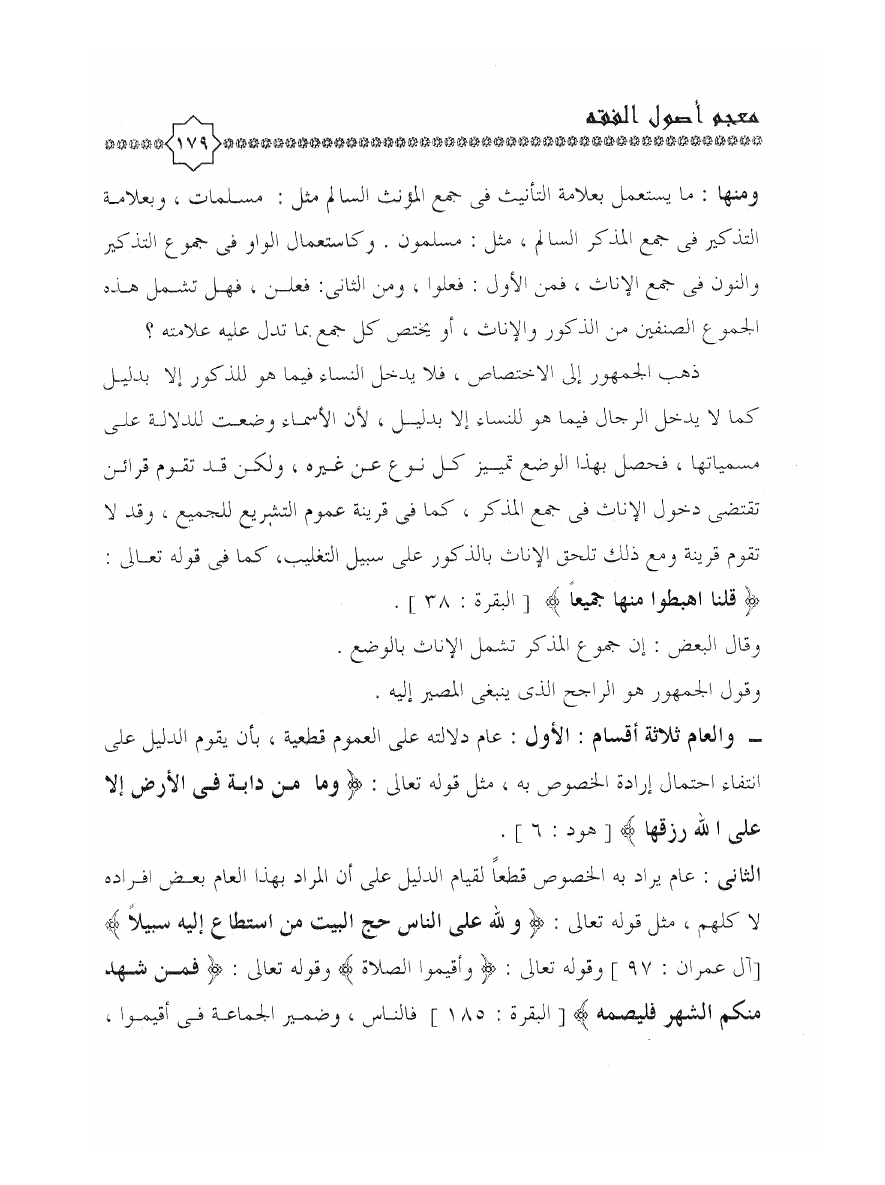 معجم أصول الفقه
١٧٩
ومنها : ما يستعمل بعلامة التأنيث فى جمع المؤنث السالم مثل : مسلمات ، وبعلامة
التذكير فى جمع المذكر السالم ، مثل : مسلمون . وكاستعمال الواو فى جموع التذكير
والنون فى جمع الإناث ، فمن الأول : فعلوا ، ومن الثانى: فعلن ، فهل تشمل هذه
الجموع الصنفين من الذكور والإناث ، أو يختص كل جمع بما تدل عليه علامته ؟
ذهب الجمهور إلى الاختصاص ، فلا يدخل النساء فيما هو للذكور إلا بدليل
كما لا يدخل الرجال فيما هو للنساء إلا بدليل ، لأن الأسماء وضعت للدلالة على
مسمياتها ، فحصل بهذا الوضع تمييز كل نوع عن غيره ، ولكن قد تقوم قرائن
تقتضى دخول الإناث فى جمع المذكر ، كما فى قرينة عموم التشريع للجميع ، وقد لا
تقوم قرينة ومع ذلك تلحق الإناث بالذكور على سبيل التغليب، كما فى قوله تعالى :
﴿ قلنا اهبطوا منها جميعاً ﴾ [ البقرة : ٣٨ ] .
وقال البعض : إن جموع المذكر تشمل الإناث بالوضع .
وقول الجمهور هو الراجح الذى ينبغى المصير إليه .
ــ والعام ثلاثة أقسام : الأول : عام دلالته على العموم قطعية ، بأن يقوم الدليل على
انتفاء احتمال إرادة الخصوص به ، مثل قوله تعالى : ﴿ وما من دابة فى الأرض إلا
على ا لله رزقها ﴾ [ هود : ٦ ] .
الثانى : عام يراد به الخصوص قطعاً لقيام الدليل على أن المراد بهذا العام بعض افراده
لا كلهم ، مثل قوله تعالى : ﴿ و لله على الناس حج البيت من استطاع إليه سبيلاً ﴾
[آل عمران : ٩٧ ] وقوله تعالى : ﴿ وأقيموا الصلاة ﴾ وقوله تعالى : ﴿ فمن شهد
منكم الشهر فليصمه ﴾ [ البقرة : ١٨٥ ] فالناس ، وضمير الجماعة فى أقيموا ،